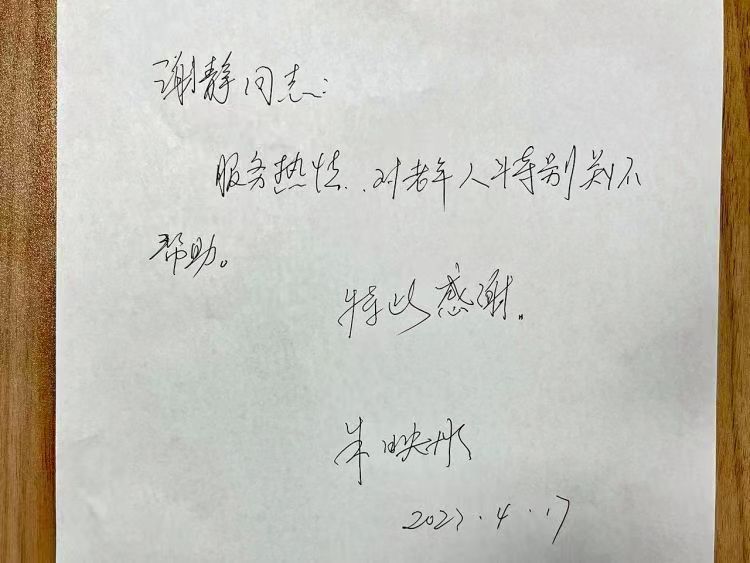 谢静同志：
服务热情、对老年人特别关心
帮助。
特此感谢。
朱映彤
2023.4.17